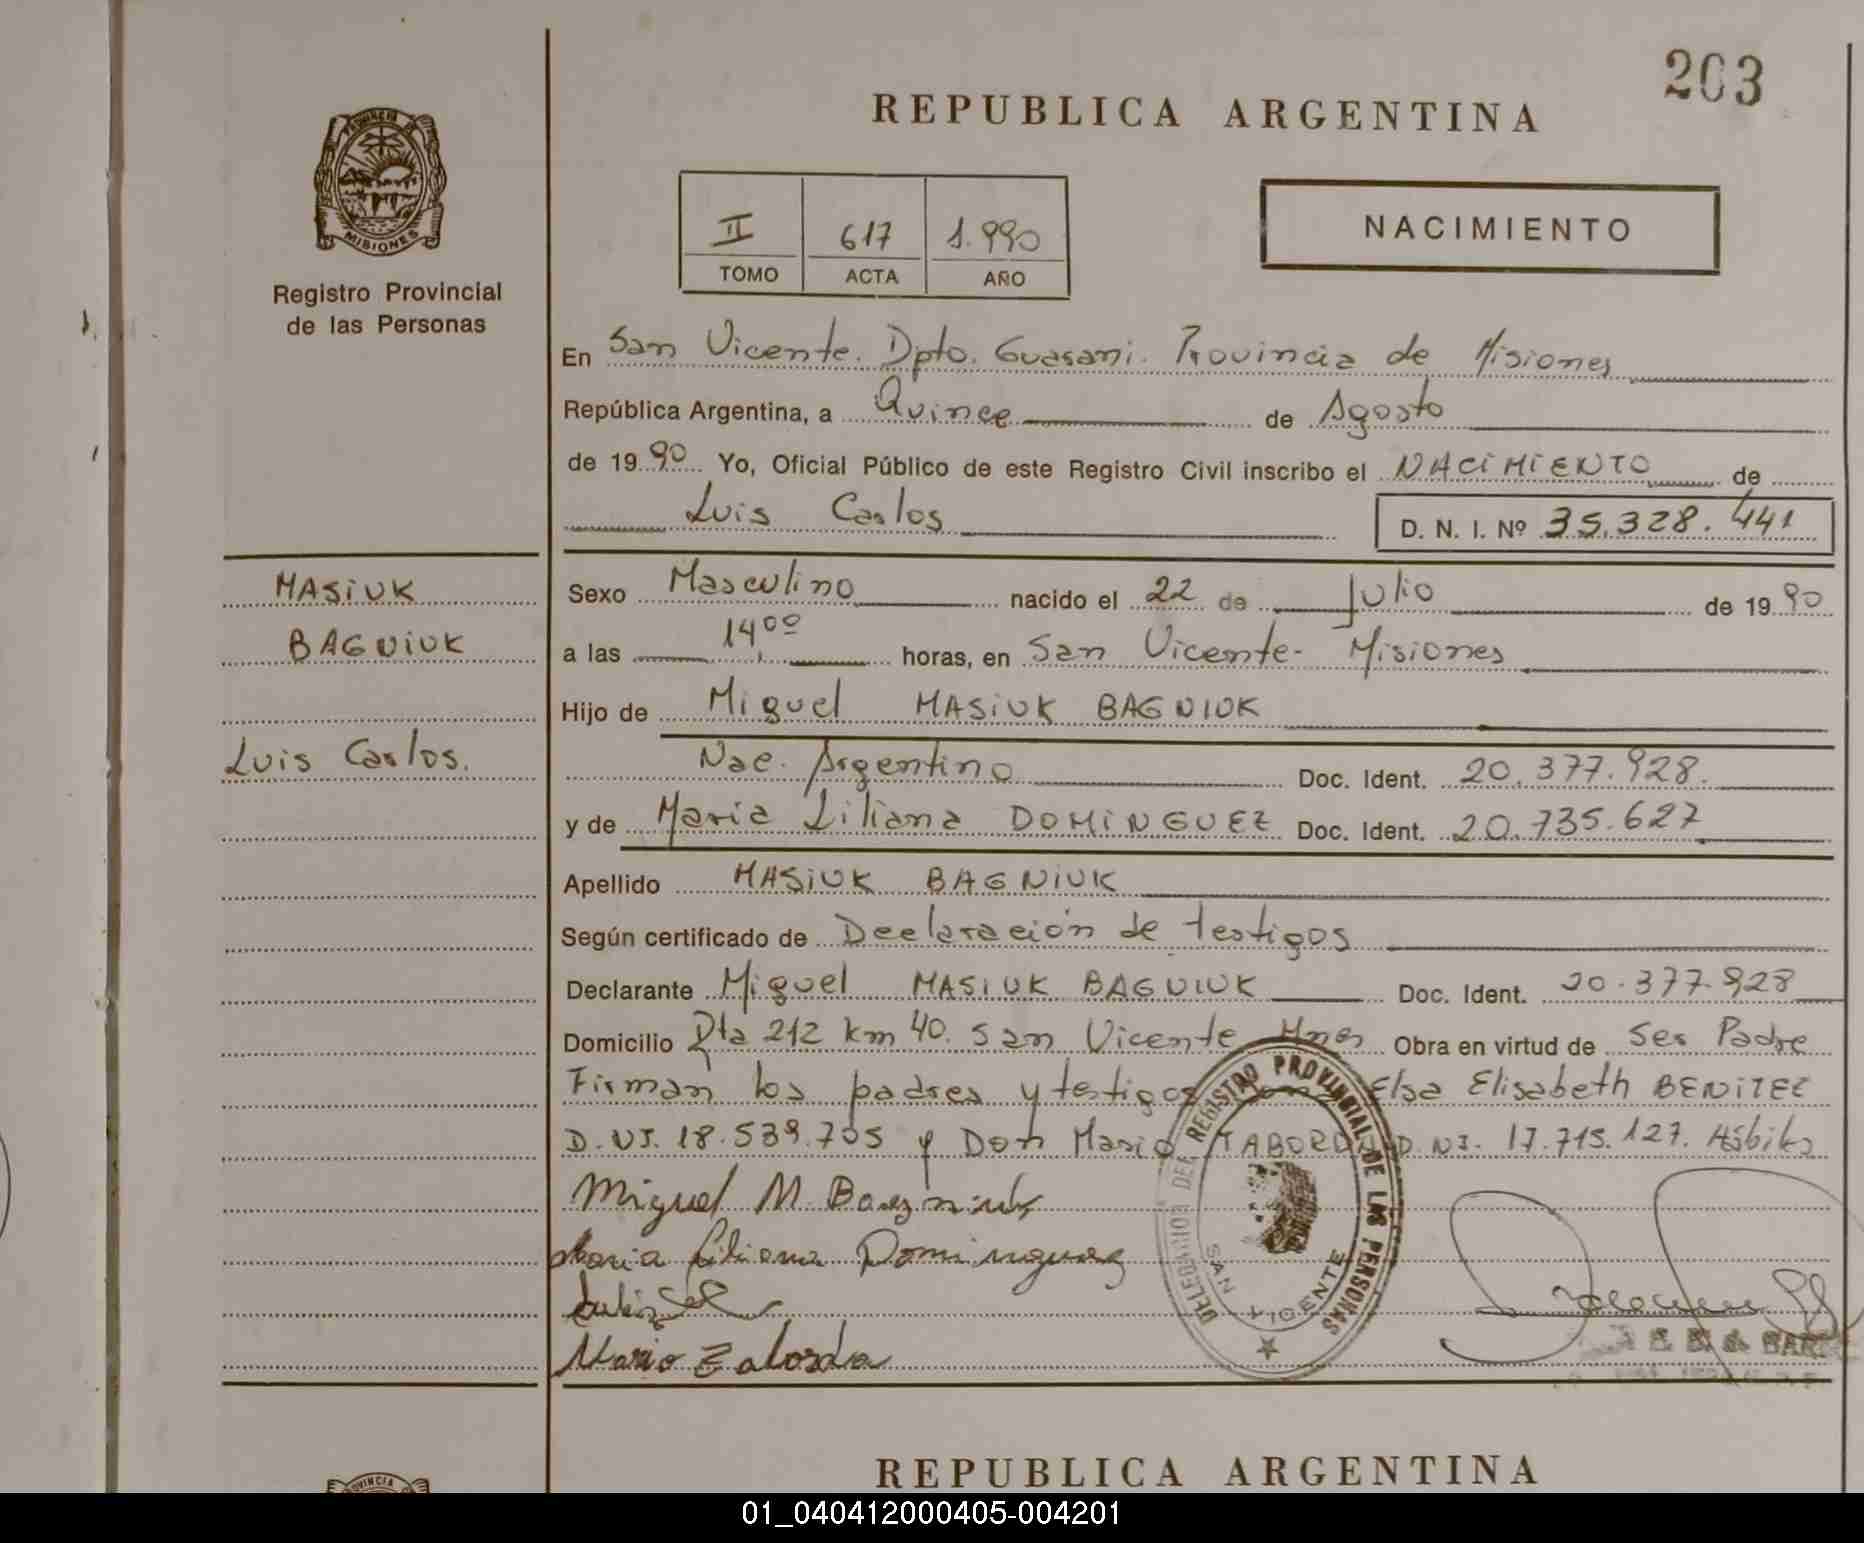 203
REPUBLICA ARGENTINA
PROVINCIA DE
MISIONES
Registro Provincial
de las Personas
II 617 1.990
TOMO ACTA AÑO
NACIMIENTO
En San Vicente. Dpto. Guarani. Provincia de Misiones
República Argentina, a Quince de Agosto
de 1990 Yo, Oficial Público de este Registro Civil inscribo el NACIMIENTO de
Luis Carlos D. N. I. Nº 35.328.441
MASIUK
BAGNIUK
Luis Carlos.
Sexo Masculino nacido el 22 de Julio de 1990
a las 14,00 horas, en San Vicente- Misiones
Hijo de Miguel MASIUK BAGNIUK
Nac. Argentino Doc. Ident. 20.377.928.
y de Maria Liliana DOMINGUEZ Doc. Ident. 20.735.627
Apellido MASIUK BAGNIUK
Según certificado de Declaración de testigos
Declarante Miguel MASIUK BAGNIUK Doc. Ident. 20.377.928
Domicilio Rta 212 Km 40. San Vicente Mnes Obra en virtud de Ser Padre
Firman los padres y testigos Elsa Elisabeth BENITEZ
D.NI. 18.539.705 y Don Mario TABORDA D.NI. 17.715.127. Hábiles
Miguel M. Bagniuk
Maria Liliana Dominguez
Mario Taborda
DELEGACION DEL REGISTRO PROVINCIAL DE LAS PERSONAS
SAN VICENTE
REPUBLICA ARGENTINA
01_040412000405-004201